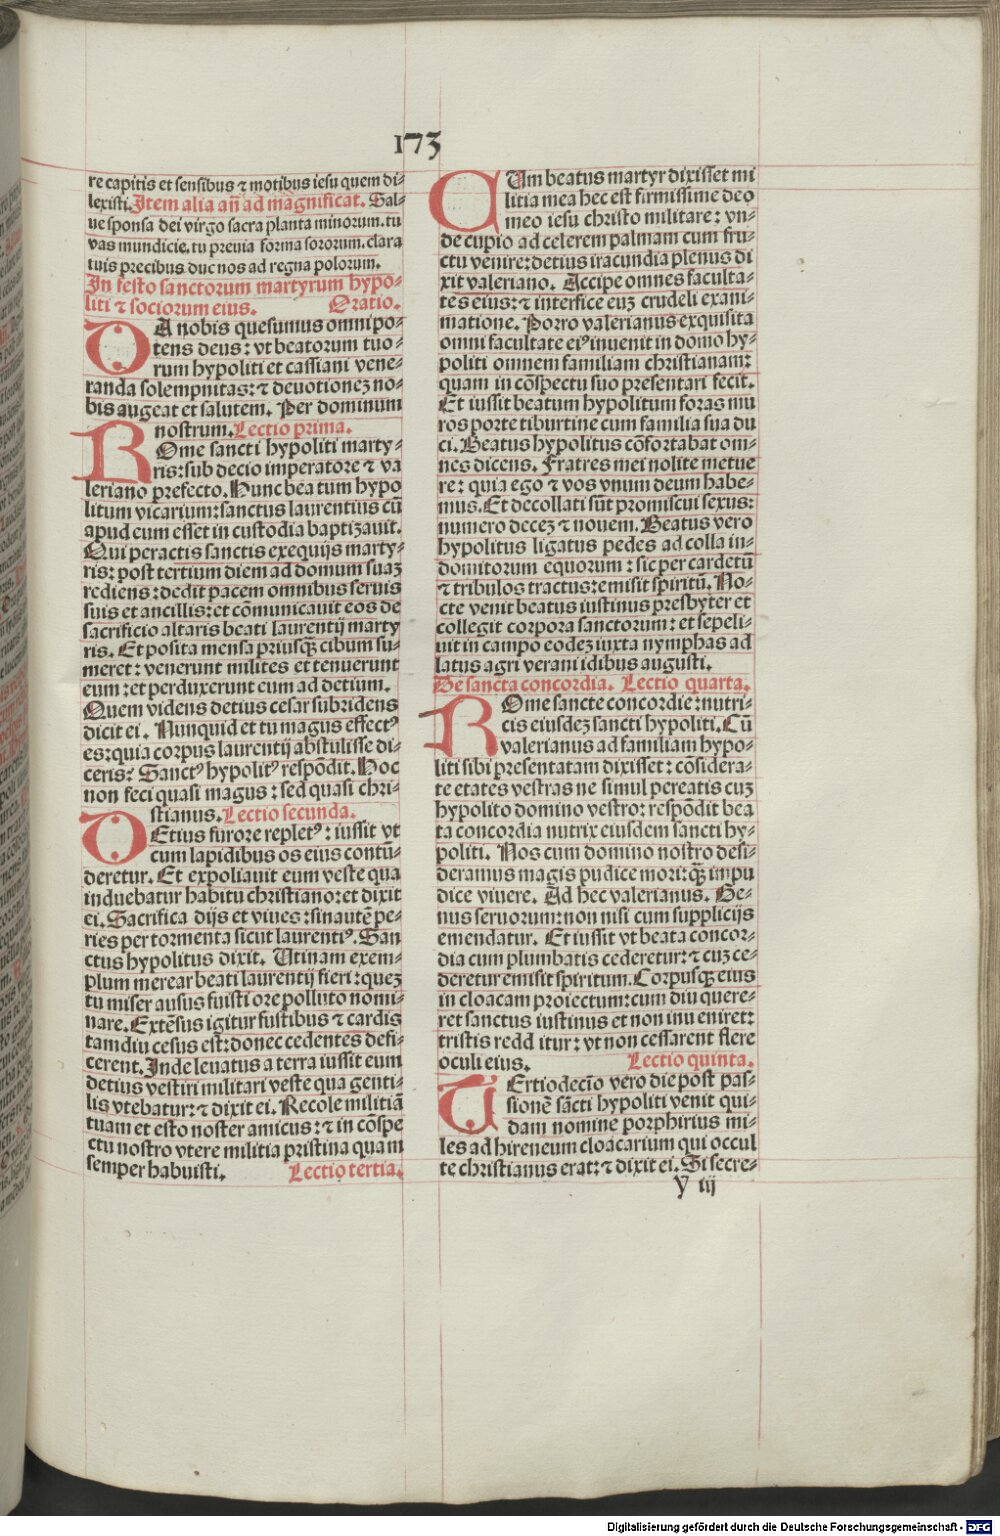 173
re capitis et sensibus ⁊ motibus iesu quem di⸗
lexisti. Item alia añ ad magnificat. Sal⸗
ue sponsa dei virgo sacra planta minorum. tu
vas mundicie. tu preuia forma sororum. clara
tuis precibus duc nos ad regna polorum.
In festo sanctorum martyrum hypo⸗
liti ⁊ sociorum eius. Oratio.
DA nobis quesumus omnipo⸗
tens deus: vt beatorum tuo⸗
rum hypoliti et cassiani vene⸗
randa solempnitas: ⁊ deuotionez no⸗
bis augeat et salutem. Per dominum
nostrum. Lectio prima.
ROme sancti hypoliti marty⸗
ris: sub decio imperatore ⁊ va
leriano prefecto. Hunc bea tum hypo
litum vicarium: sanctus laurentius cū
apud eum esset in custodia baptizauit.
Qui peractis sanctis exequijs marty⸗
ris: post tertium diem ad domum suaz
rediens: dedit pacem omnibus seruis
suis et ancillis: et cōmunicauit eos de
sacrificio altaris beati laurentij marty
ris. Et posita mensa priusqꝫ cibum su⸗
meret: venerunt milites et tenuerunt
eum: et perduxerunt eum ad detium.
Quem videns detius cesar subridens
dicit ei. Nunquid et tu magus effectꝰ
es: quia corpus laurentij abstulisse di⸗
ceris: Sanctꝰ hypolitꝰ respōdit. Hoc
non feci quasi magus: sed quasi chri⸗
stianus. Lectio secunda.
DEtius furore repletꝰ: iussit vt
cum lapidibus os eius contū⸗
deretur. Et expoliauit eum veste qua
induebatur habitu christiano: et dixit
ei. Sacrifica dijs et viues: sin autē pe⸗
ries per tormenta sicut laurentiꝰ. San
ctus hypolitus dixit. Utinam exem⸗
plum merear beati laurentij fieri: quez
tu miser ausus fuisti ore polluto nomi⸗
nare. Extēsus igitur fustibus ⁊ cardis
tamdiu cesus est: donec cedentes defi⸗
cerent. Inde leuatus a terra iussit eum
detius vestiri militari veste qua genti⸗
lis vtebatur: ⁊ dixit ei. Recole militiā
tuam et esto noster amicus: ⁊ in cōspe
ctu nostro vtere militia pristina quam
semper habuisti. Lectio tertia.
CUm beatus martyr dixisset mi
litia mea hec est firmissime deo
meo iesu christo militare: vn⸗
de cupio ad celerem palmam cum fru⸗
ctu venire: detius iracundia plenus di
xit valeriano. Accipe omnes faculta⸗
tes eius: ⁊ interfice euz crudeli exani⸗
matione. Porro valerianus exquisita
omni facultate eiꝰ inuenit in domo hy⸗
politi omnem familiam christianam:
quam in cōspectu suo presentari fecit.
Et iussit beatum hypolitum foras mu
ros porte tiburtine cum familia sua du
ci. Beatus hypolitus cōfortabat om⸗
nes dicens. Fratres mei nolite metue
re: quia ego ⁊ vos vnum deum habe⸗
mus. Et decollati sūt promiscui sexus:
numero decez ⁊ nouem. Beatus vero
hypolitus ligatus pedes ad colla in⸗
domitorum equorum: sic per cardetū
⁊ tribulos tractus: emisit spiritū. No⸗
cte venit beatus iustinus presbyter et
collegit corpora sanctorum: et sepeli⸗
uit in campo eodez iuxta nymphas ad
latus agri verani idibus augusti.
De sancta concordia. Lectio quarta.
ROme sancte concordie: nutri⸗
cis eiusdez sancti hypoliti. Cū
valerianus ad familiam hypo⸗
liti sibi presentatam dixisset: cōsidera⸗
te etates vestras ne simul pereatis cuz
hypolito domino vestro: respōdit bea
ta concordia nutrix eiusdem sancti hy⸗
politi. Nos cum domino nostro desi⸗
deramus magis pudice mori: qꝫ impu
dice viuere. Ad hec valerianus. Ge⸗
nus seruorum: non nisi cum supplicijs
emendatur. Et iussit vt beata concor⸗
dia cum plumbatis cederetur: ⁊ cuz ce⸗
deretur emisit spiritum. Corpusqꝫ eius
in cloacam proiectum: cum diu quere⸗
ret sanctus iustinus et non inu eniret:
tristis redd itur: vt non cessarent flere
oculi eius. Lectio quinta.
TErtiodecīo vero die post pas⸗
sionē sācti hypoliti venit qui⸗
dam nomine porphirius mi⸗
les ad hireneum cloacarium qui occul
te christianus erat: ⁊ dixit ei. Si secre⸗
y iij
Digitalisierung gefördert durch die Deutsche Forschungsgemeinschaft - DFG